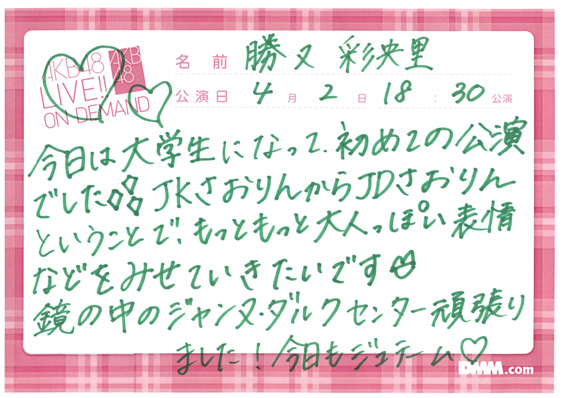 AKB48
LIVE!!
ON DEMAND
AKB
48
名前 勝又 彩央里
公演日 4月2日 18:30公演
今日は大学生になって、初めての公演
でした JKさおりんからJDさおりん
ということで、もっともっと大人っぽい表情
などをみせていきたいです
鏡の中のジャンヌ・ダルクセンター頑張り
ました!今日もジュテーム♡
DMM.com